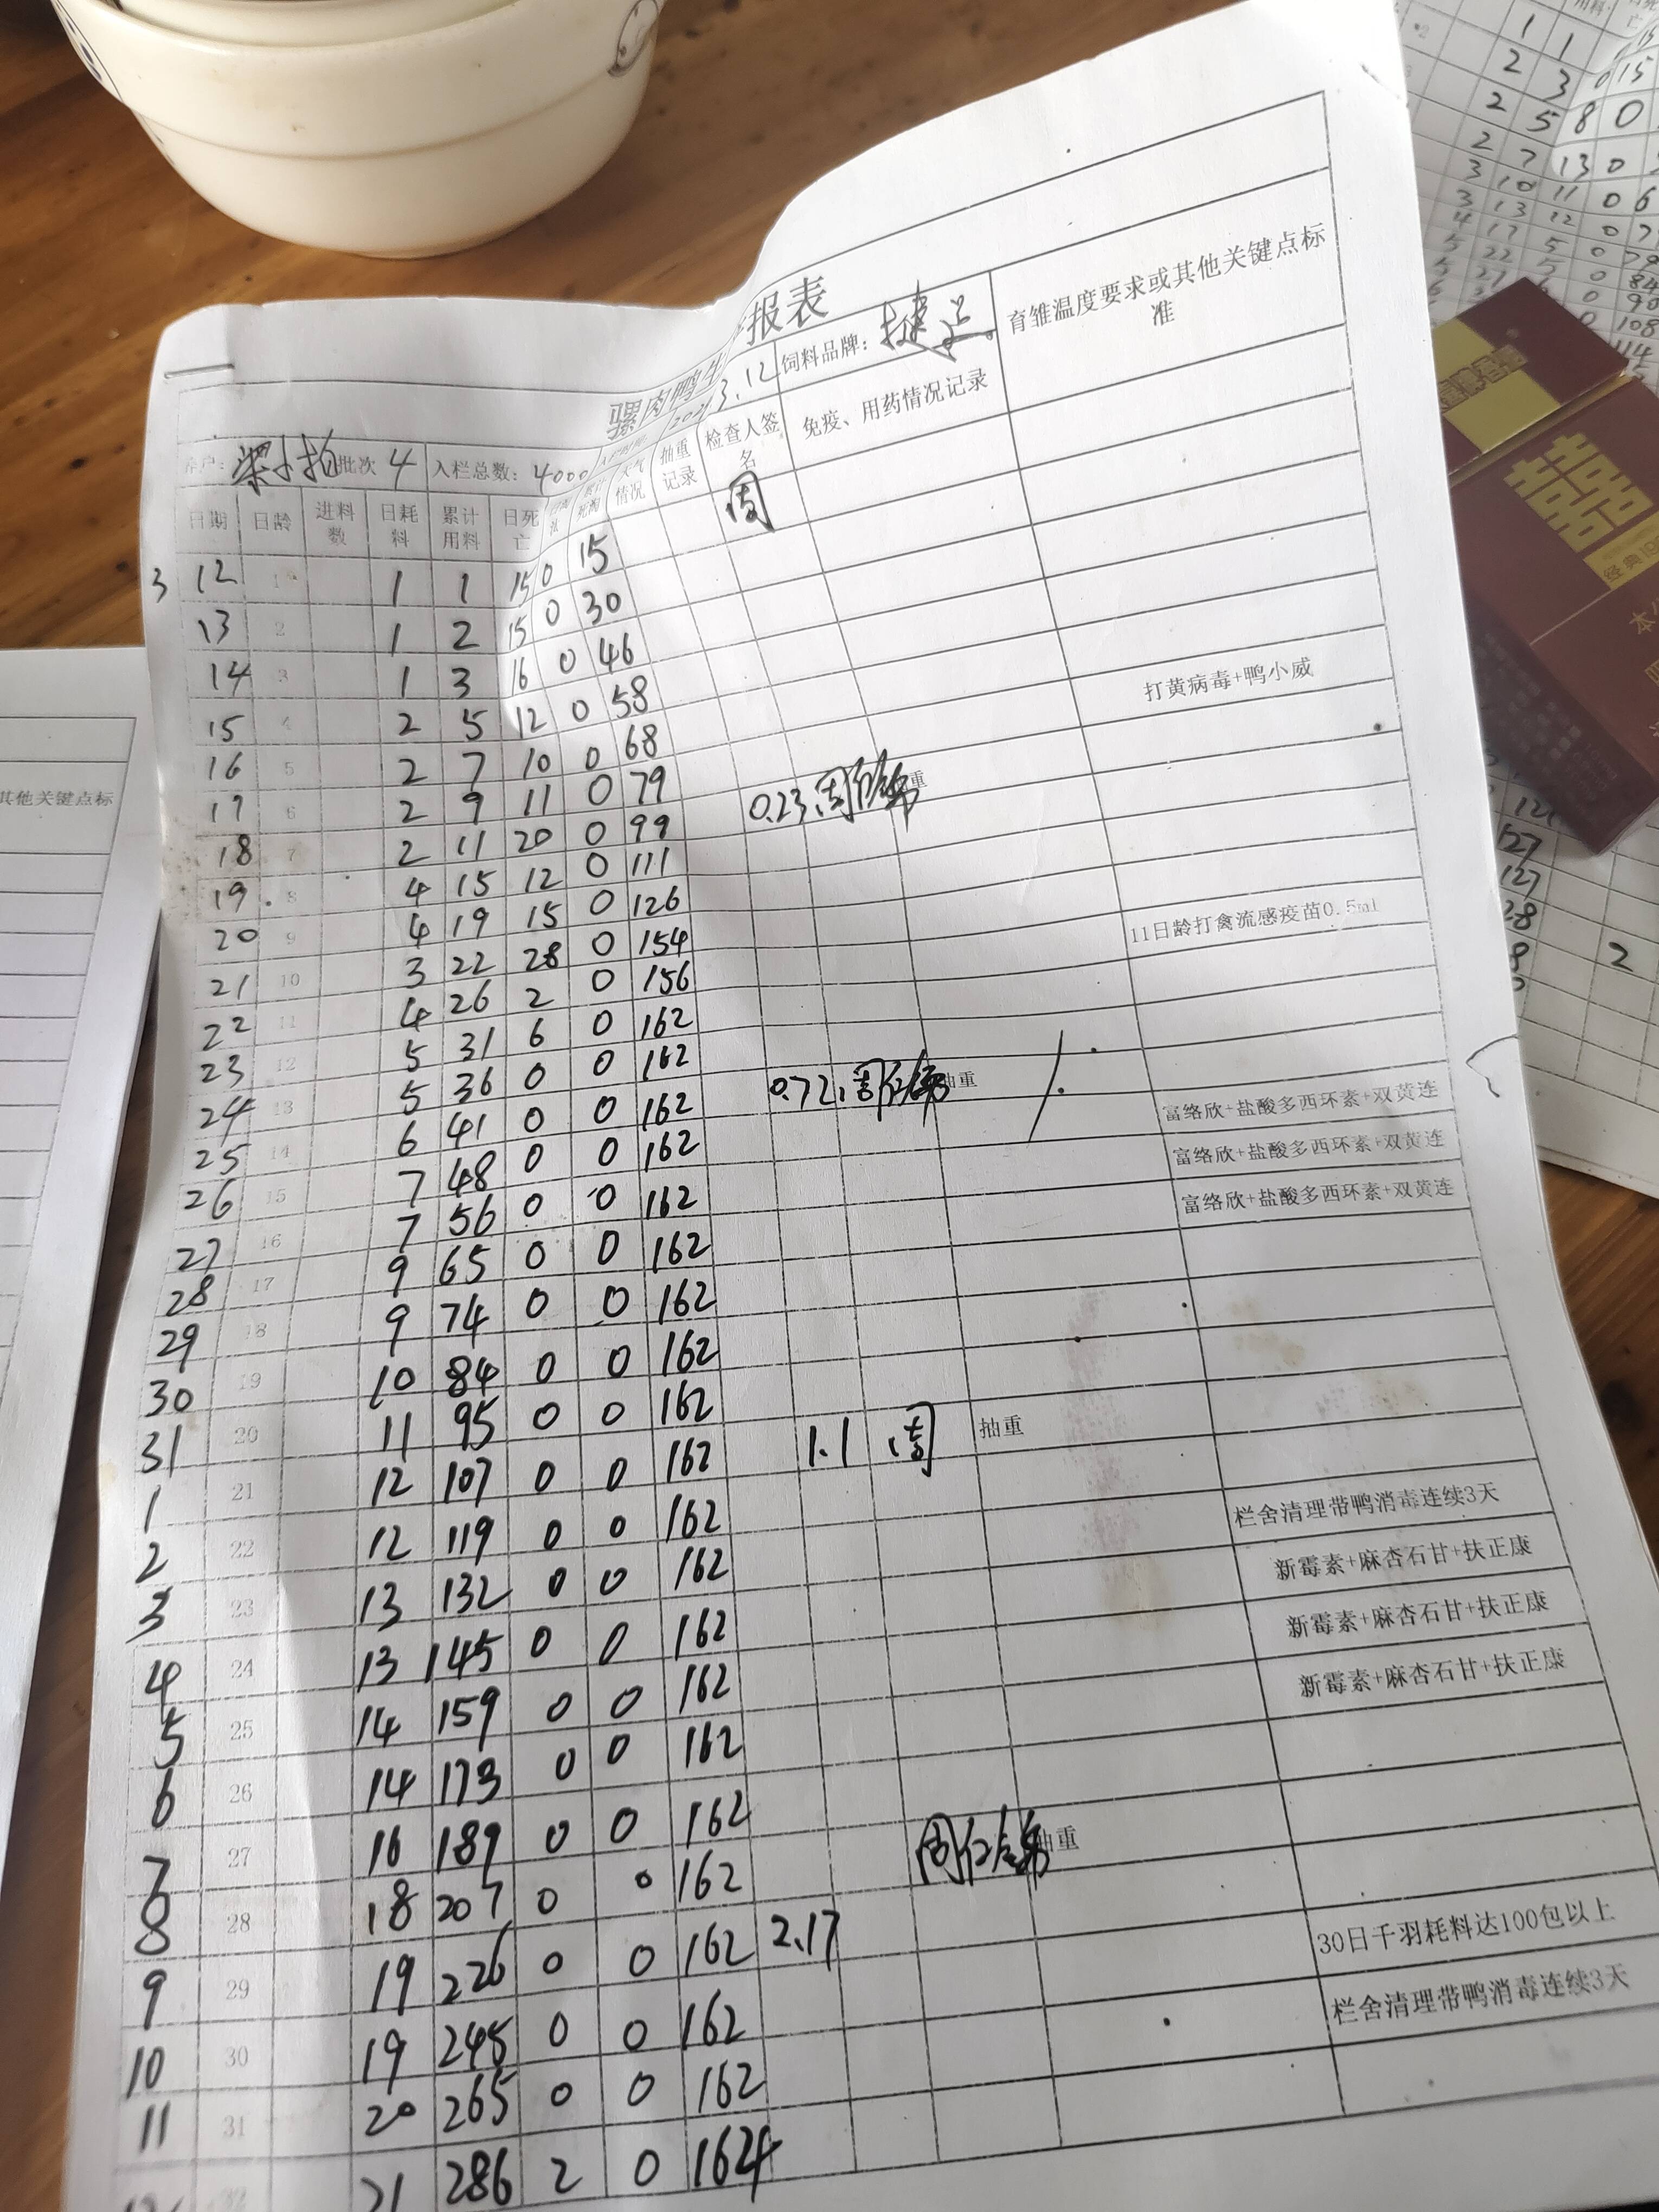 骡肉鸭生 报表
养户: 批次 4 入栏总数: 4000 3.12 饲料品牌: 捷 育雏温度要求或其他关键点标准
日期 日龄 进料数 日耗料 累计用料 日死亡 天气情况 抽重记录 检查人签名 免疫、用药情况记录
周
3 12 1 1 1 15 0 15
13 2 1 2 15 0 30
14 3 1 3 16 0 46
15 4 2 5 12 0 58 打黄病毒+鸭小威
16 5 2 7 10 0 68
17 6 2 9 11 0 79
18 7 2 11 20 0 99 0.23 周 重
19 8 4 15 12 0 111
20 9 4 19 15 0 126
21 10 3 22 28 0 154
22 11 4 26 2 0 156 11日龄打禽流感疫苗0.5ml
23 12 5 31 6 0 162
24 13 5 36 0 0 162
25 14 6 41 0 0 162 0.72 周 抽重
26 15 7 48 0 0 162 富络欣+盐酸多西环素+双黄连
27 16 7 56 0 0 162 富络欣+盐酸多西环素+双黄连
28 17 9 65 0 0 162 富络欣+盐酸多西环素+双黄连
29 18 9 74 0 0 162
30 19 10 84 0 0 162
31 20 11 95 0 0 162
1 21 12 107 0 0 162 1.1 周 抽重
2 22 12 119 0 0 162
3 23 13 132 0 0 162 栏舍清理带鸭消毒连续3天
4 24 13 145 0 0 162 新霉素+麻杏石甘+扶正康
5 25 14 159 0 0 162 新霉素+麻杏石甘+扶正康
6 26 14 173 0 0 162 新霉素+麻杏石甘+扶正康
7 27 16 189 0 0 162
8 28 18 207 0 0 162 周 抽重
9 29 19 226 0 0 162 2.17
10 30 19 245 0 0 162 30日千羽耗料达100包以上
11 31 20 265 0 0 162 栏舍清理带鸭消毒连续3天
32 21 286 2 0 164
其他关键点标
用料
1 1
2 3 0 15
2 5 8 0
2 7 13 0
3 10 11 0 6
3 13 12 0 7
4 17 5 0 79
5 22 5 0 84
27 0 90
0 108
114
127
127
2
经典